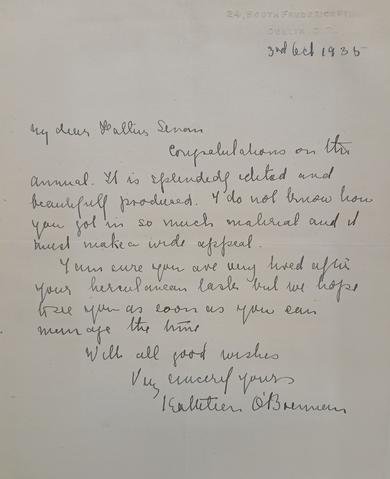 24, SOUTH FREDERICK ST.
DUBLIN, C.2.
3rd Oct 1935
My dear Father Senan
Congratulations on the
annual. It is splendidly edited and
beautifully produced. I do not know how
you got in so much material and it
must make a wide appeal.
I am sure you are very tired after
your herculanean task but we hope
to see you as soon as you can
manage the time
With all good wishes
Very sincerely yours
Kathleen O'Brennan